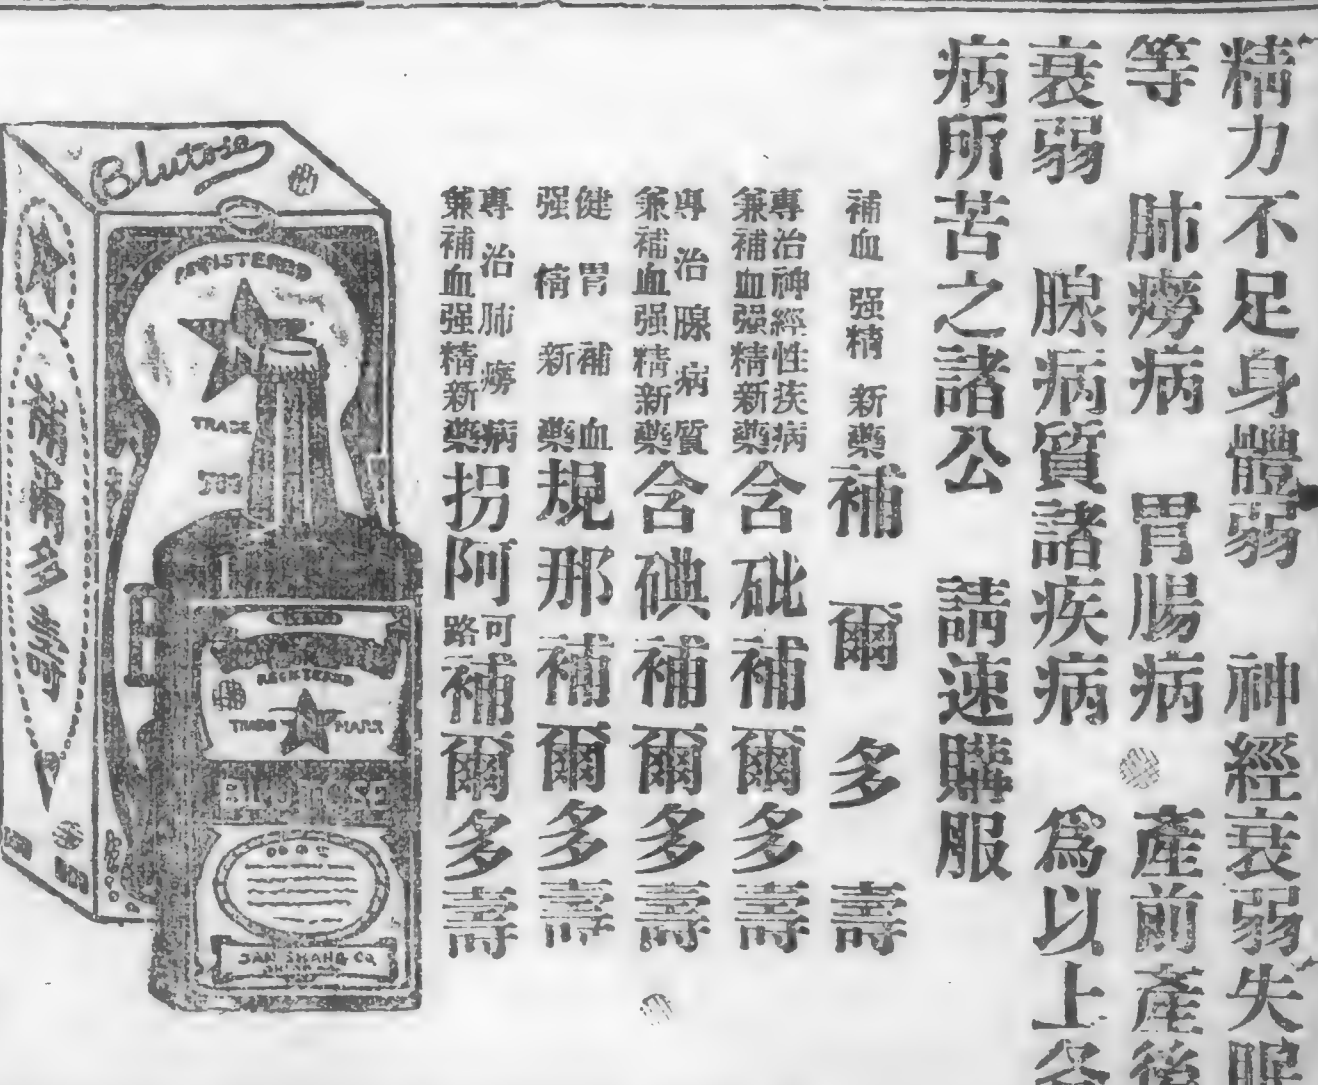 精力不足身體弱 神經衰弱失眠
等 肺癆病 胃腸病 產前產後
衰弱 腺病質諸疾病 爲以上各
病所苦之諸公 請速購服
補血 强精 新藥 補爾多壽
專治神經性疾病
兼補血强精新藥
含砒補爾多壽
專治腺病質
兼補血强精新藥
含碘補爾多壽
健胃補血
强精新藥
規那補爾多壽
專治肺癆病
兼補血强精新藥
拐阿可路補爾多壽
Blutose
REGISTERED
TRADE
補爾多壽
REGISTERED
TRADE MARK
BLUTOSE